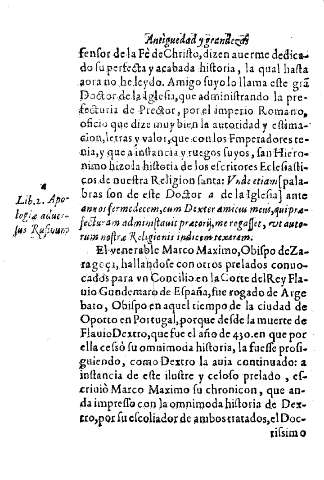 Antiguedad y grandezas
fensor de la Fè de Christo, dizen auerme dedica-
do su perfecta y acabada historia, la qual hasta
aora no he leydo. Amigo suyo lo llama este grã
Doctor de la Iglesia, que administrando la pre-
fecturia de Prector, por el imperio Romano,
oficio que dize muy bien la autoridad y estima-
cion, letras y valor, que con los Emperadores te-
nia, y que a instancia y ruegos suyos, san Hiero-
nimo hizo la historia de los escritores Eclesiasti-
cos de nuestra Religion santa: Vnde etiam [pala-
bras son de este Doctor a de la Iglesia] ante
annos fermedecem, cum Dexter amicus meus, qui præ-
fecturam administrauit prætorij, me rogasset, vt auto-
rum nostræ Religionis indicem texerem.
a
Lib. 2. Apo-
logiæ aduer-
sus Rufinum
El venerable Marco Maximo, Obispo de Za-
ragoça, hallandose con otros prelados conuo-
cados para vn Concilio en la Corte del Rey Fla-
uio Gundemaro de España, fue rogado de Arge
bato, Obispo en aquel tiempo de la ciudad de
Oporto en Portugal, porque desde la muerte de
Flauio Dextro, que fue el año de 430. en que por
ella cessó su omnimoda historia, la fuesse prosi-
guiendo, como Dextro la auia continuado: a
instancia de este ilustre y celoso prelado, es-
criuiò Marco Maximo su chronicon, que an-
da impresso con la omnimoda historia de Dex-
tro, por su escoliador de ambos tratados, el Doc-
tissimo